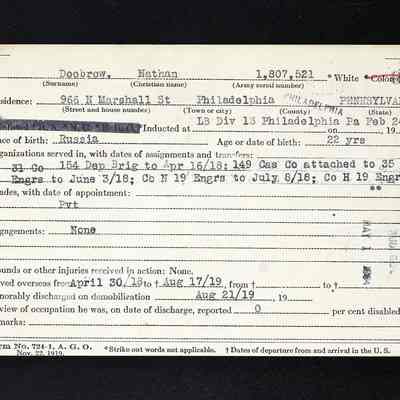 Doobrow, Nathan 1,807,521 * White Colored
(Surname) (Christian name) (Army serial number)
sidence: 966 N Marshall St Philadelphia PHILADELPHIA PENNSYLVA
(Street and house number) (Town or city) (County) (State)
Inducted at LB Div 13 Philadelphia Pa Feb 2
on , 19
ce of birth: Russia Age or date of birth: 22 yrs
ganizations served in, with dates of assignments and transfers:
154 Dep Brig to Apr 16/18; 149 Cas Co attached to 35
31 Co
Engrs to June 3/18; Co N 19 Engrs to July 8/18; Co H 19 Engr
**
ades, with date of appointment:
Pvt
gagements: None
MAY 1
unds or other injuries received in action: None.
ved overseas from April 30/18 to † Aug 17/19, from † to †
norably discharged on demobilization Aug 21/19 , 19
view of occupation he was, on date of discharge, reported 0 per cent disabled
marks:
rm No. 724-1, A. G. O. *Strike out words not applicable. † Dates of departure from and arrival in the U. S.
Nov. 22, 1919.